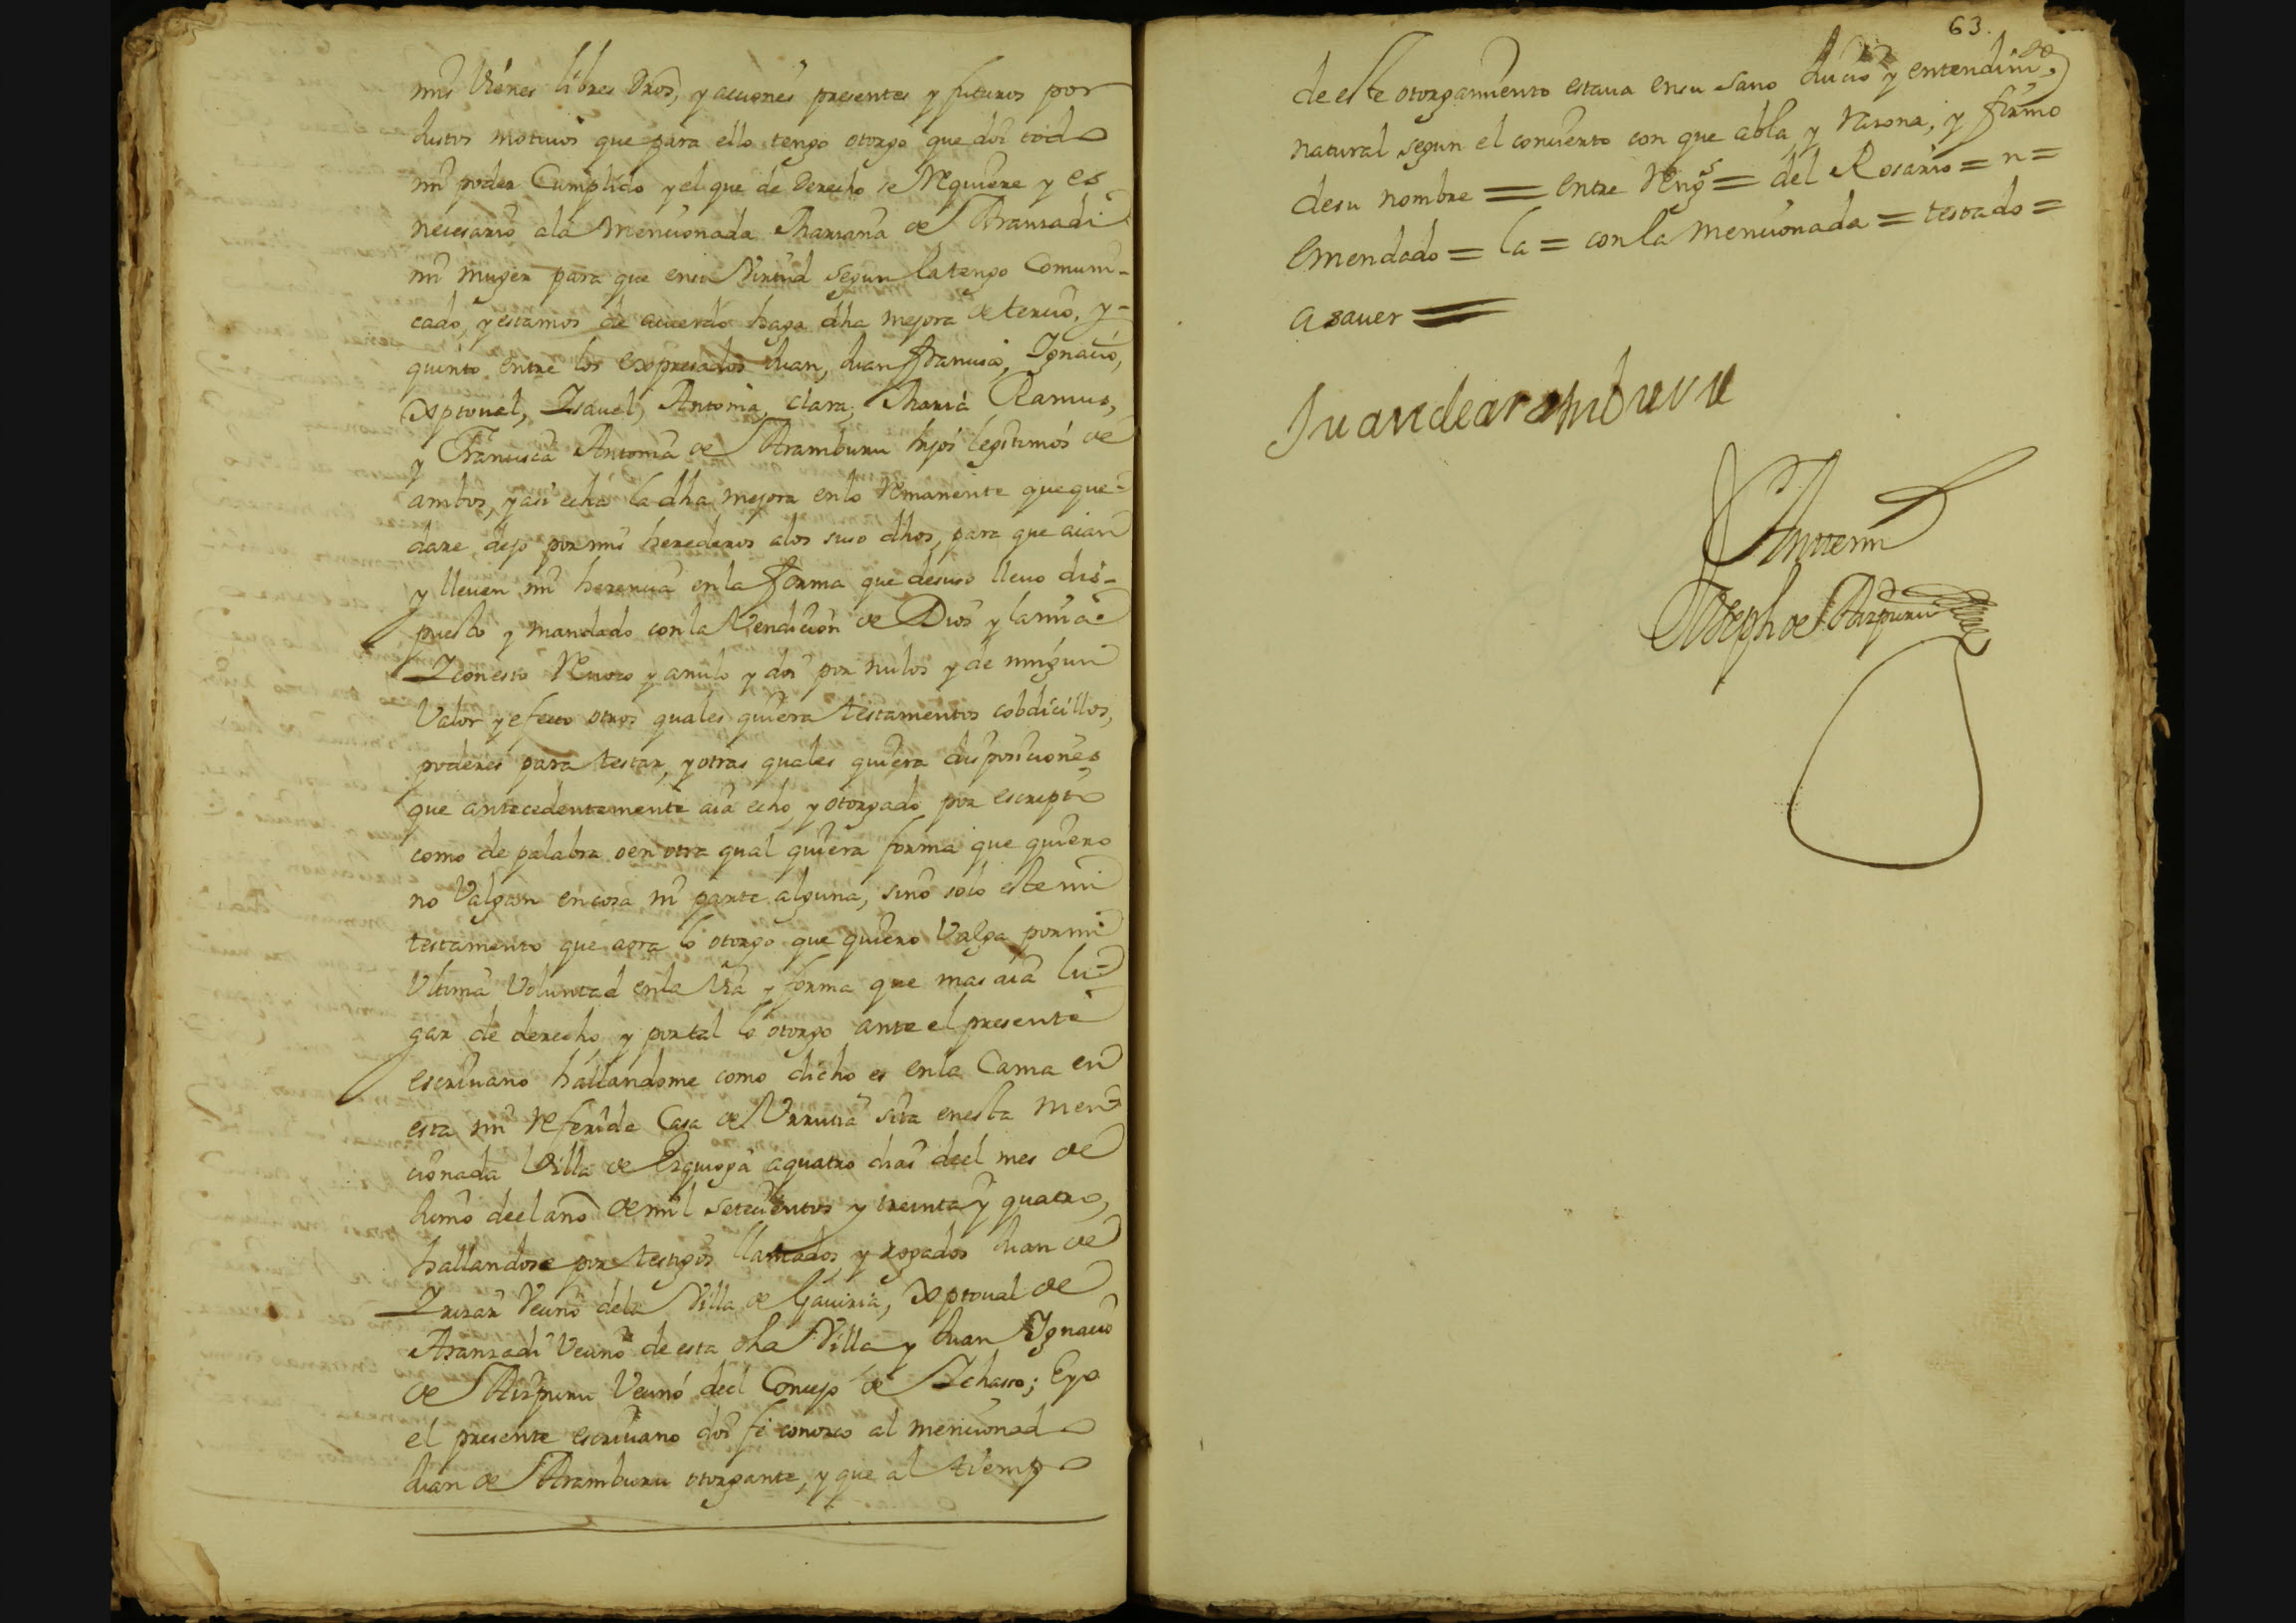 mis Vienes libres dros, y acciones presentes y futuros por
Justos motiuos que para ello tengo otorgo que doi todo
mi poder Cumplido y el que de derecho se Requiere y es
necesario ala mencionada Mariana de Aranzadi
mi muger para que en su Virtud segun la tengo Comuni-
cado, y estamos de acuerdo haga dha mejora de tercio, y-
quinto entre los expresados Juan, Juan francisco, Ignacio,
Xptoual, Isauel, Antonia, clara, Maria Ramus,
y Francisca Antonia de Aramburu hijos legitimos de
ambos, y asi echa la dha mejora en lo Remanente que que-
dare dejo por mis herederos alos suso dhos, para que aian
y lleuen mi herencia en la forma que desuso lleuo dis-
puesto y mandado con la Vendicion de Dios y la mia
Iconesto Reuoco y anulo y doi por nulos y de ningun
Valor y efecto otros quales quiera testamentos cobdicillos,
poderes para testar, y otras quales quiera disposiciones
que antecedentemente aia echo y otorgado por escripto
como de palabra o en otra qual quiera forma que quiero
no Valgan en cosa ni parte alguna, sino solo este mi
testamento que aora lo otorgo que quiero Valga por mi
Vltima Voluntad en la Via y forma que mas aia lu-
gar de derecho y por tal lo otorgo ante el presente
escriuano hallandome como dicho es en la Cama en
esta mi Referida Casa de Vrrutia sita en esta men-
cionada Villa de Ezquioga a quatro dias deel mes de
Junio deel año de mil setecientos y treinta y quatro,
hallandose por testigos llamados y rogados Juan de
Irizar Vecino dela Villa de Gauiria, Xptoual de
Aranzadi Vecino de esta dha Villa y Juan Ignacio
de Aizpuru Vecino deel Concejo de Ichasso; E yo
el presente escriuano doi fe conozco al mencionado
Juan de Aramburu otorgante, y que al tiempo
63.
de este otorgamiento estaua en su sano Juicio y entendimto,
natural segun el concierto con que abla y razona, y firmo
de su nombre = entre Rengs = del Rosario = n =
Emendado = la = con la mencionada = testado =
a sauer =
Juan de aramburu
Ante mi
Joseph de Aizpuru